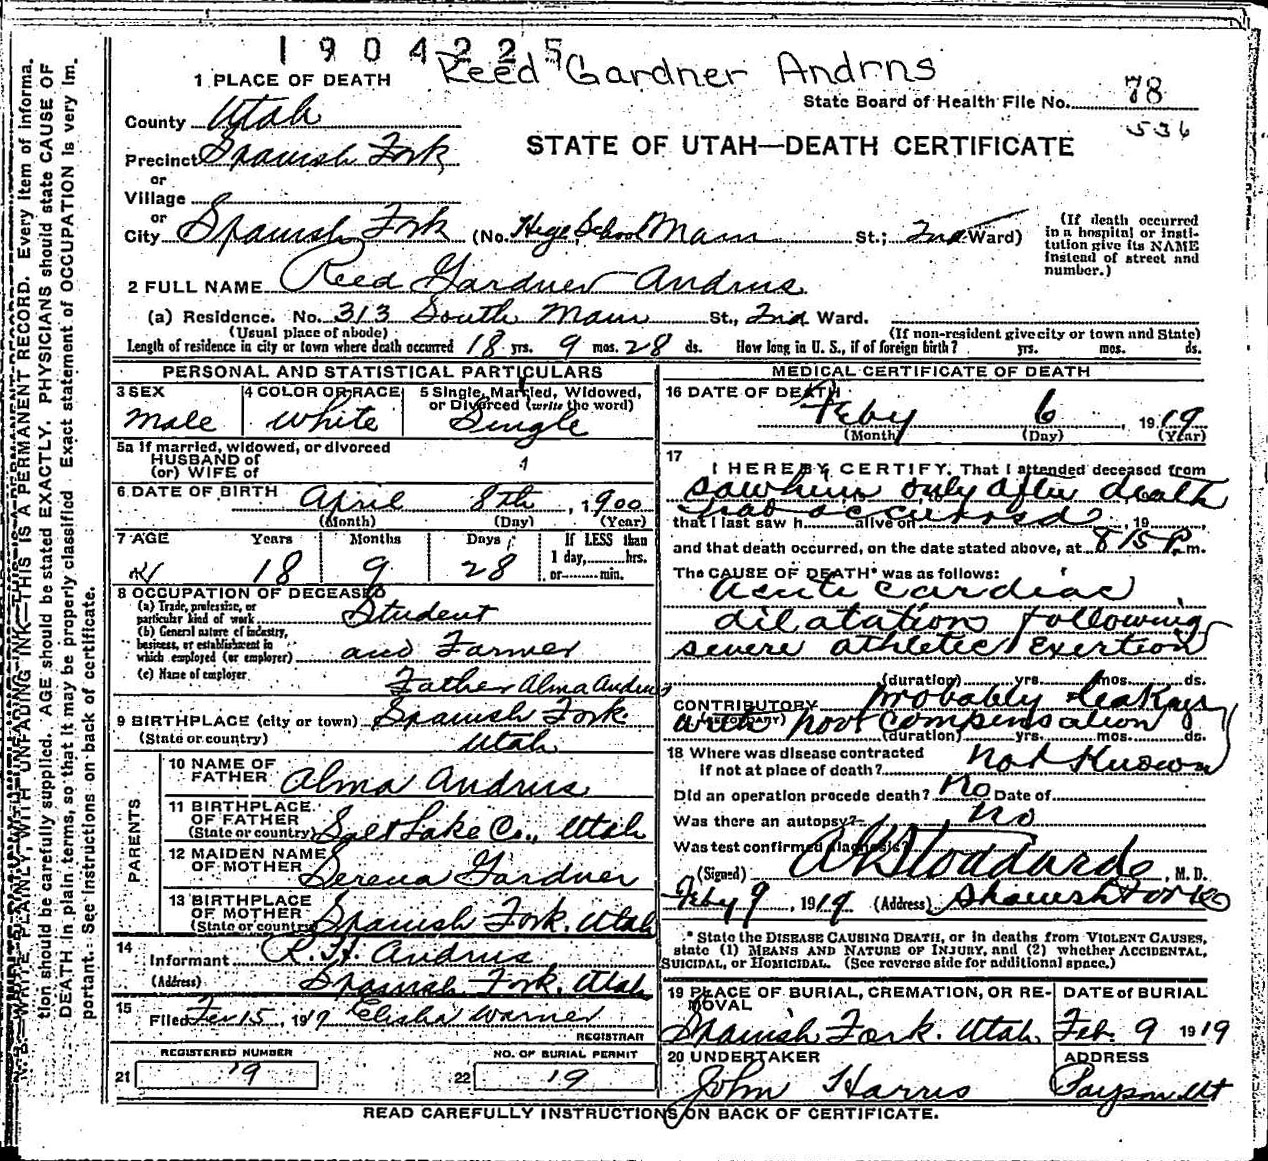 1904225
Reed Gardner Andrns
1 PLACE OF DEATH
State Board of Health File No. 78
536
County Utah
STATE OF UTAH—DEATH CERTIFICATE
Precinct Spanish Fork
or
Village
or
City Spanish Fork (No. High School Main St.; 2nd Ward)
(If death occurred in a hospital or insti-
tution give its NAME
instead of street and
number.)
2 FULL NAME Reed Gardner Andrus
(a) Residence. No. 313 South Main St., 2nd Ward.
(Usual place of abode) (If non-resident give city or town and State)
Length of residence in city or town where death occurred 18 yrs. 9 mos. 28 ds. How long in U. S., if of foreign birth? yrs. mos. ds.
PERSONAL AND STATISTICAL PARTICULARS
3 SEX Male
4 COLOR OR RACE White
5 Single, Married, Widowed, or Divorced (write the word) Single
5a If married, widowed, or divorced
HUSBAND of
(or) WIFE of
6 DATE OF BIRTH April 8th, 1900
(Month) (Day) (Year)
7 AGE Years Months Days If LESS than
1 day,......hrs.
or......min.
18 9 28
8 OCCUPATION OF DECEASED
(a) Trade, profession, or
particular kind of work Student
(b) General nature of industry,
business, or establishment in
which employed (or employer) and Farmer
(c) Name of employer Father Alma Andrus
9 BIRTHPLACE (city or town) Spanish Fork
(State or country) Utah
PARENTS
10 NAME OF
FATHER Alma Andrus
11 BIRTHPLACE
OF FATHER
(State or country) Salt Lake Co., Utah
12 MAIDEN NAME
OF MOTHER Serena Gardner
13 BIRTHPLACE
OF MOTHER
(State or country) Spanish Fork, Utah
14
Informant R. H. Andrus
(Address) Spanish Fork, Utah
15
Filed Fev 15, 1919 Elisha Warner
REGISTRAR
REGISTERED NUMBER
21 19
NO. OF BURIAL PERMIT
22 19
MEDICAL CERTIFICATE OF DEATH
16 DATE OF DEATH Feby 6 1919
(Month) (Day) (Year)
17
I HEREBY CERTIFY, That I attended deceased from
saw him only after death
had occurred
that I last saw h......alive on......, 19......,
and that death occurred, on the date stated above, at 815 P.m.
The CAUSE OF DEATH* was as follows:
Acute cardiac
dilatation following
severe athletic Exertion
(duration) yrs. mos. ds.
CONTRIBUTORY probably leakage
(SECONDARY) with poor compensation
(duration) yrs. mos. ds.
18 Where was disease contracted
if not at place of death? Not Known
Did an operation procede death? No Date of
Was there an autopsy? No
Was test confirmed diagnosis?
(Signed) Stoddard, M. D.
Feby 9, 1919 (Address) Spanish Fork
* State the DISEASE CAUSING DEATH, or in deaths from VIOLENT CAUSES,
state (1) MEANS AND NATURE OF INJURY, and (2) whether ACCIDENTAL,
SUICIDAL, or HOMICIDAL. (See reverse side for additional space.)
19 PLACE OF BURIAL, CREMATION, OR RE-
MOVAL
Spanish Fork. Utah.
DATE of BURIAL
Feb. 9 1919
20 UNDERTAKER
John Harris
ADDRESS
Payson Ut
READ CAREFULLY INSTRUCTIONS ON BACK OF CERTIFICATE.
N. B.—WRITE PLAINLY, WITH UNFADING INK—THIS IS A PERMANENT RECORD. Every item of informa-
tion should be carefully supplied. AGE should be stated EXACTLY. PHYSICIANS should state CAUSE OF
DEATH in plain terms, so that it may be properly classified. Exact statement of OCCUPATION is very im-
portant. See Instructions on back of certificate.